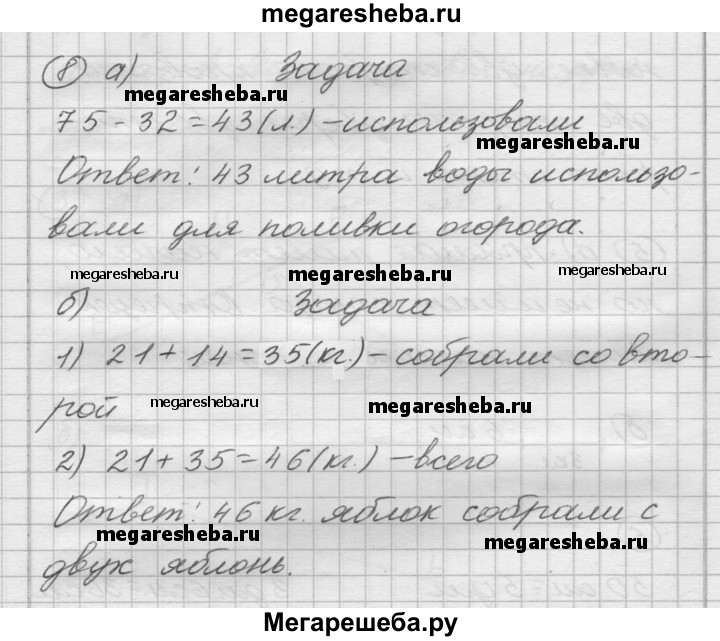 megaresheba.ru
8 а) Задача
megaresheba.ru
75 - 32 = 43 (л.) - использовали
megaresheba.ru
Ответ: 43 литра воды использо-
вали для поливки огорода.
megaresheba.ru megaresheba.ru megaresheba.ru
б) Задача
1) 21 + 14 = 35 (кг.) - собрали со вто-
рой megaresheba.ru megaresheba.ru
2) 21 + 35 = 46 (кг.) - всего
Ответ: 46 кг. яблок собрали с
megaresheba.ru megaresheba.ru
двух яблонь.
Мегарешеба.ру